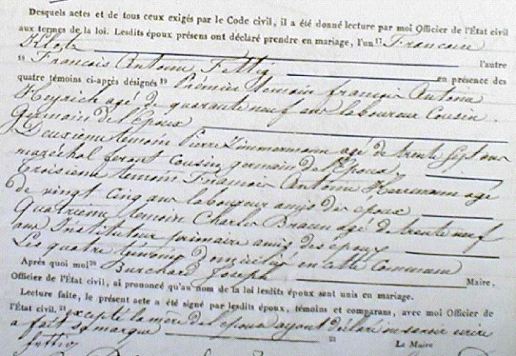 Desquels actes et de tous ceux exigés par le Code civil, il a été donné lecture par moi Officier de l'État civil
aux termes de la loi. Lesdits époux présens ont déclaré prendre en mariage, l'un 17 Francoise
Klotz l'autre
18 François Antoine Fettig en présence des
quatre témoins ci-après désignés 19 Premier temoin françois Antoine
Heyrich agé de quarante neuf ans laboureur Cousin
Germain de l'époux
Deuxieme temoin Pierre Zimmermann agé de trente sept ans
maréchal ferant Cousin germain de l'époux
troisieme temoin François Antoine agé
de vingt cinq ans laboureur amis des époux
Quatrième temoin Charles Braun agé de trente neuf
ans Instituteur primaire amis des époux
Les quatre témoins domiciliés en cette Commune
Après quoi moi 20 Burchard Joseph Maire,
Officier de l'État civil, ai prononcé qu'au nom de la loi lesdits époux sont unis en mariage.
Lecture faite, le présent acte a été signé par lesdits époux, témoins et comparans, avec moi Officier de
l'État civil. 21 excepté la mère de l'époux ayant déclaré ne savoir ecrire
a fait sa marque Le Maire
fettig